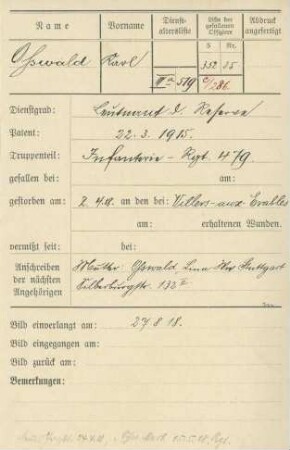 Name Vorname Dienst-
altersliste Liste der
gefallenen
Offiziere Abdruck
angefertigt
S. Nr.
Osswald Karl 352 25
519 286
Dienstgrad: Leutnant d. Reserve
Patent: 22.3.1915.
Truppenteil: Infanterie-Rgt. 479.
gefallen bei: am:
gestorben am: 2.4.18. an den bei: Villers-aux Erables
am: erhaltenen Wunden.
vermißt seit: bei:
Anschreiben
der nächsten
Angehörigen
Mutter Osswald, Stuttgart
Silberburgstr.
Bild einverlangt am: 27.8.18.
Bild eingegangen am:
Bild zurück am:
Bemerkungen: